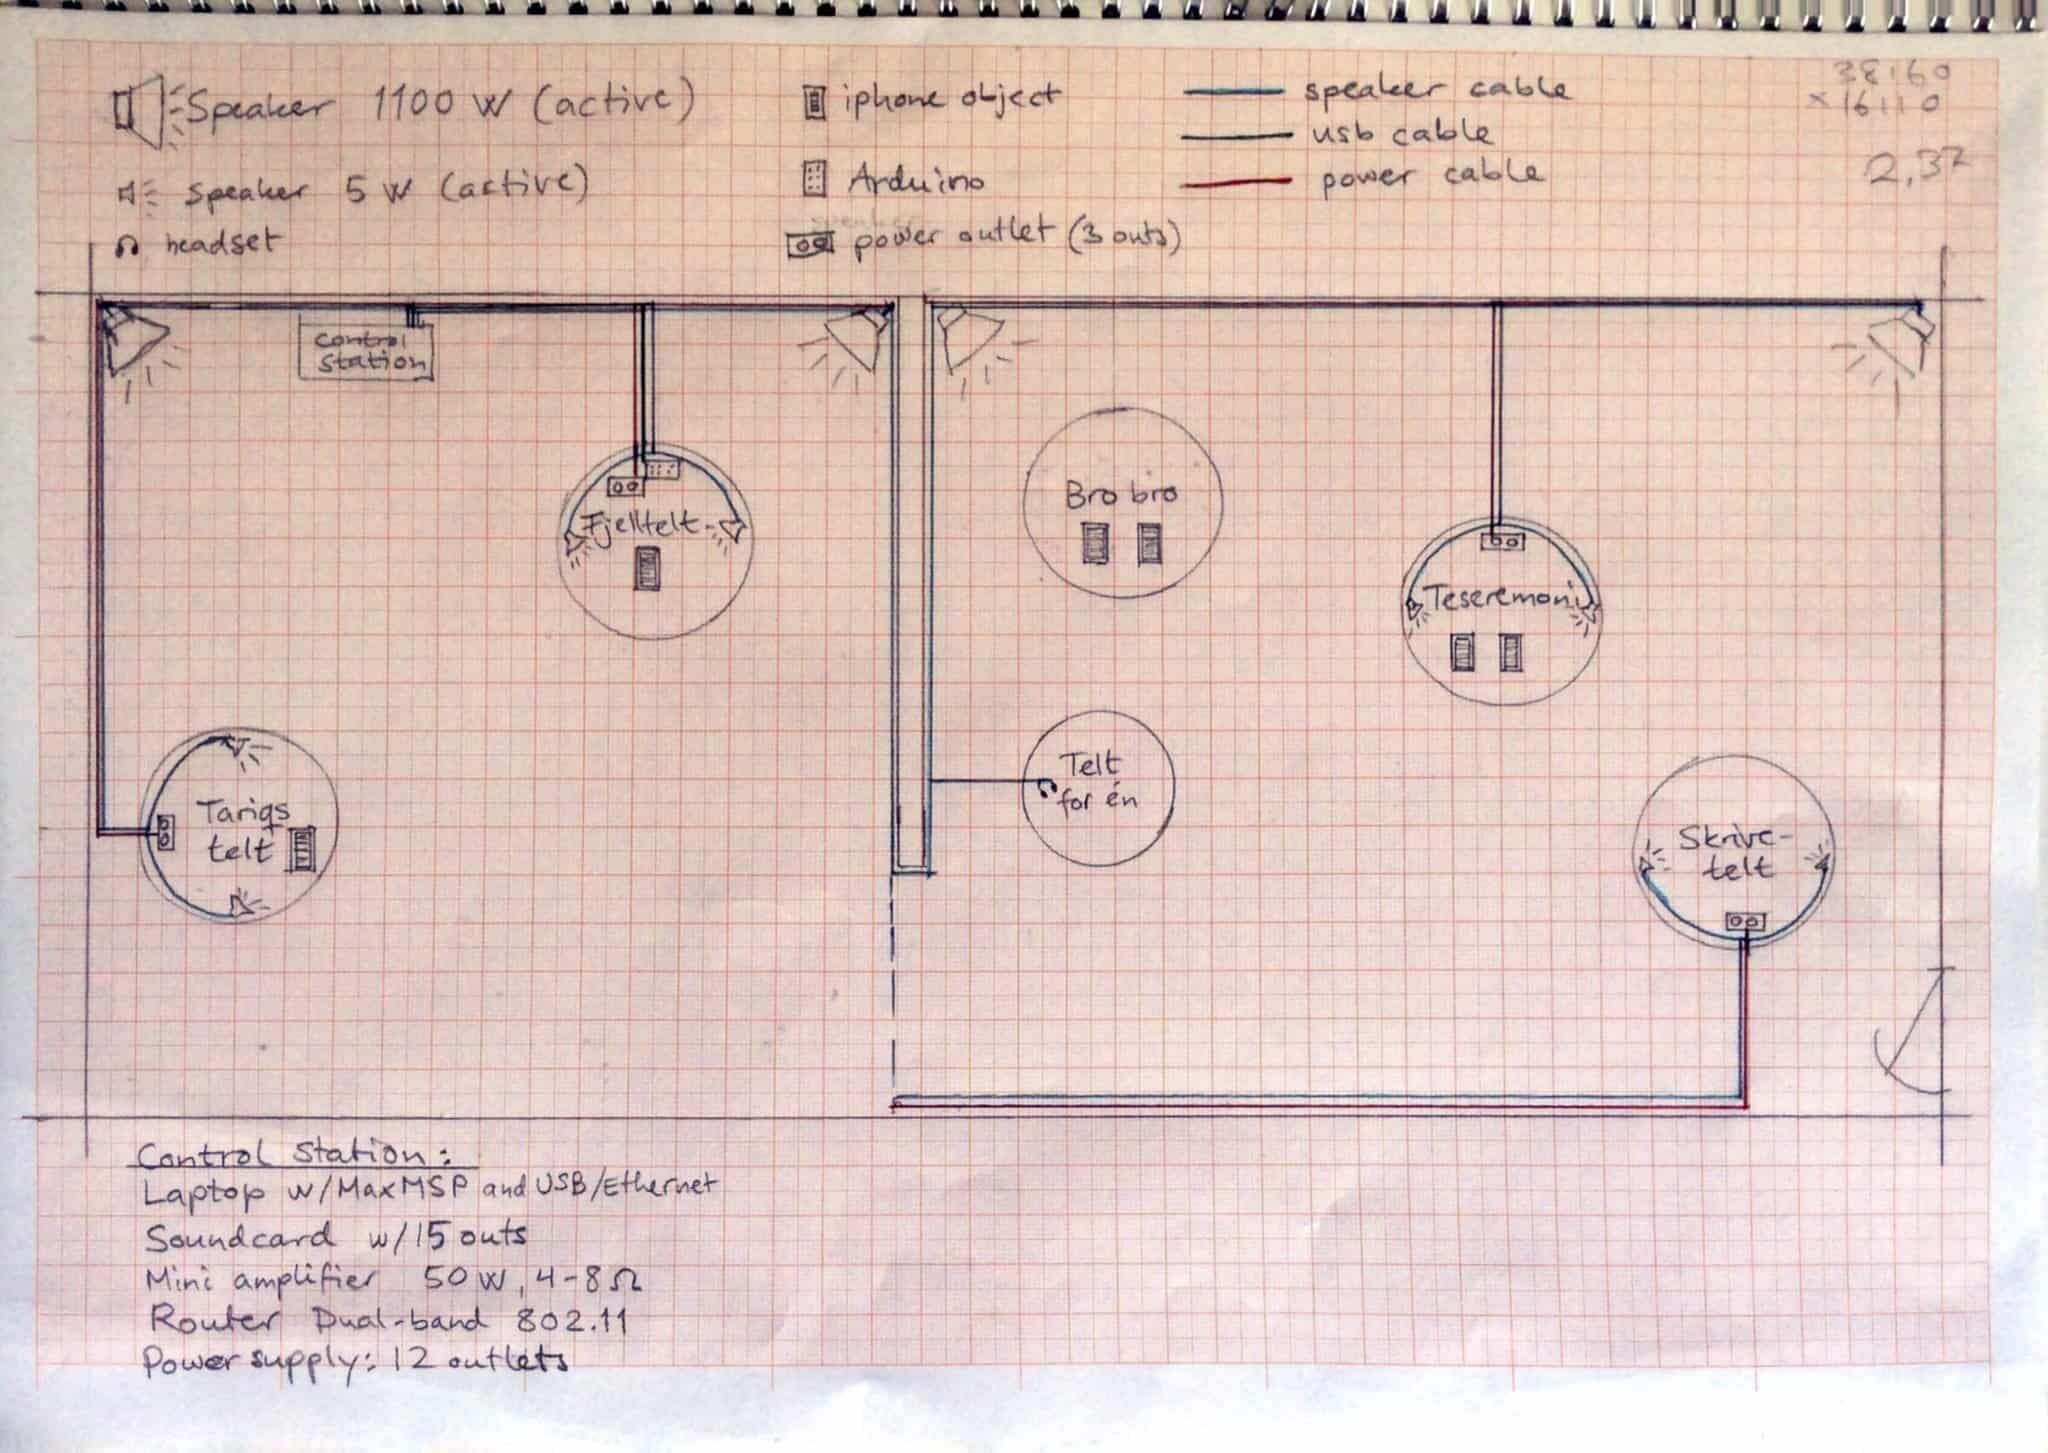 Speaker 1100 W (active)
speaker 5 W (active)
headset
iphone object
Arduino
power outlet (3 outs)
speaker cable
usb cable
power cable
38160
x 16110
2,37
control
station
Fjelltelt
Tariqs
telt
Bro bro
Teseremoni
Telt
for én
Skrive-
telt
Control Station:
Laptop w/MaxMSP and USB/Ethernet
Soundcard w/15 outs
Mini amplifier 50 W, 4-8 Ω
Router Dual-band 802.11
Power supply: 12 outlets